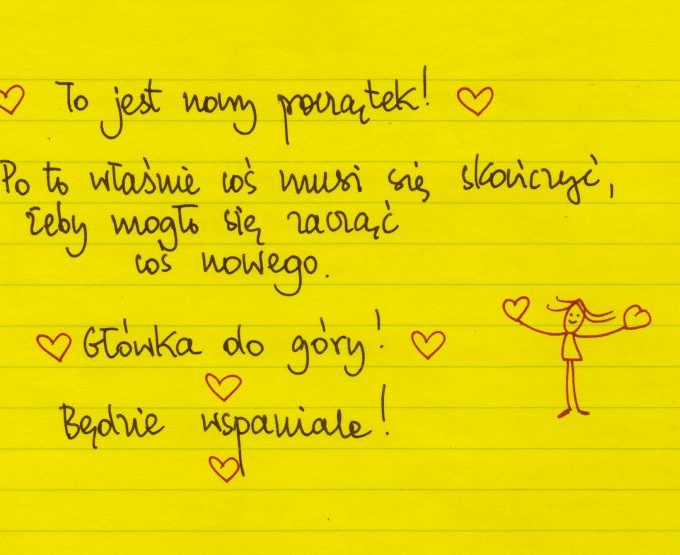 To jest nowy początek!
Po to właśnie coś musi się skończyć,
żeby mogło się zacząć
coś nowego.
Główka do góry!
Będzie wspaniale!